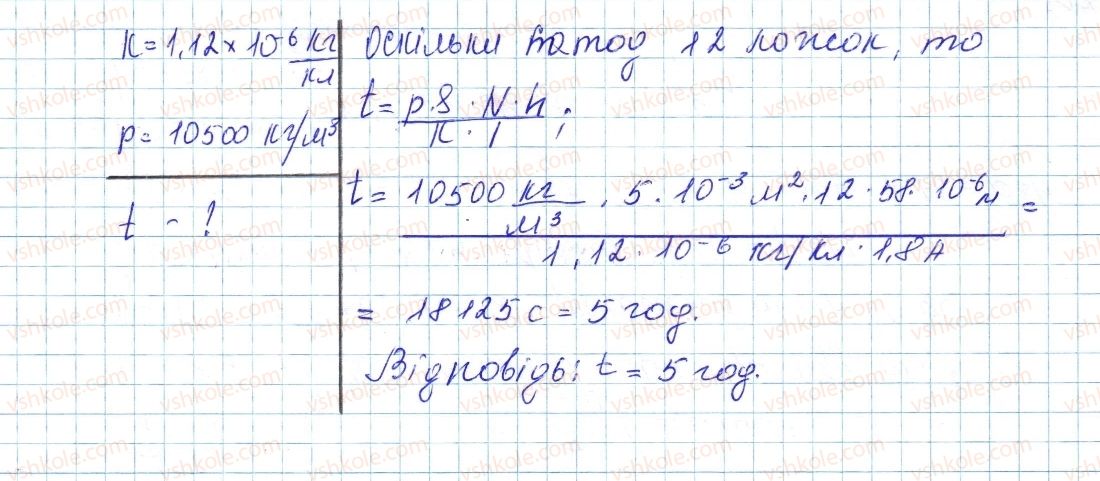 K = 1,12 × 10⁻⁶ кг/кл
p = 10500 кг/м³
t - ?
Оскільки катод 12 ложок, то
t = p·S·N·h / K·I ;
t = 10500 кг/м³ · 5·10⁻³ м² · 12 · 58·10⁻⁶ м / 1,12·10⁻⁶ кг/кл · 1,8 А =
= 18125 с = 5 год.
Відповідь: t = 5 год.
vshkole.com